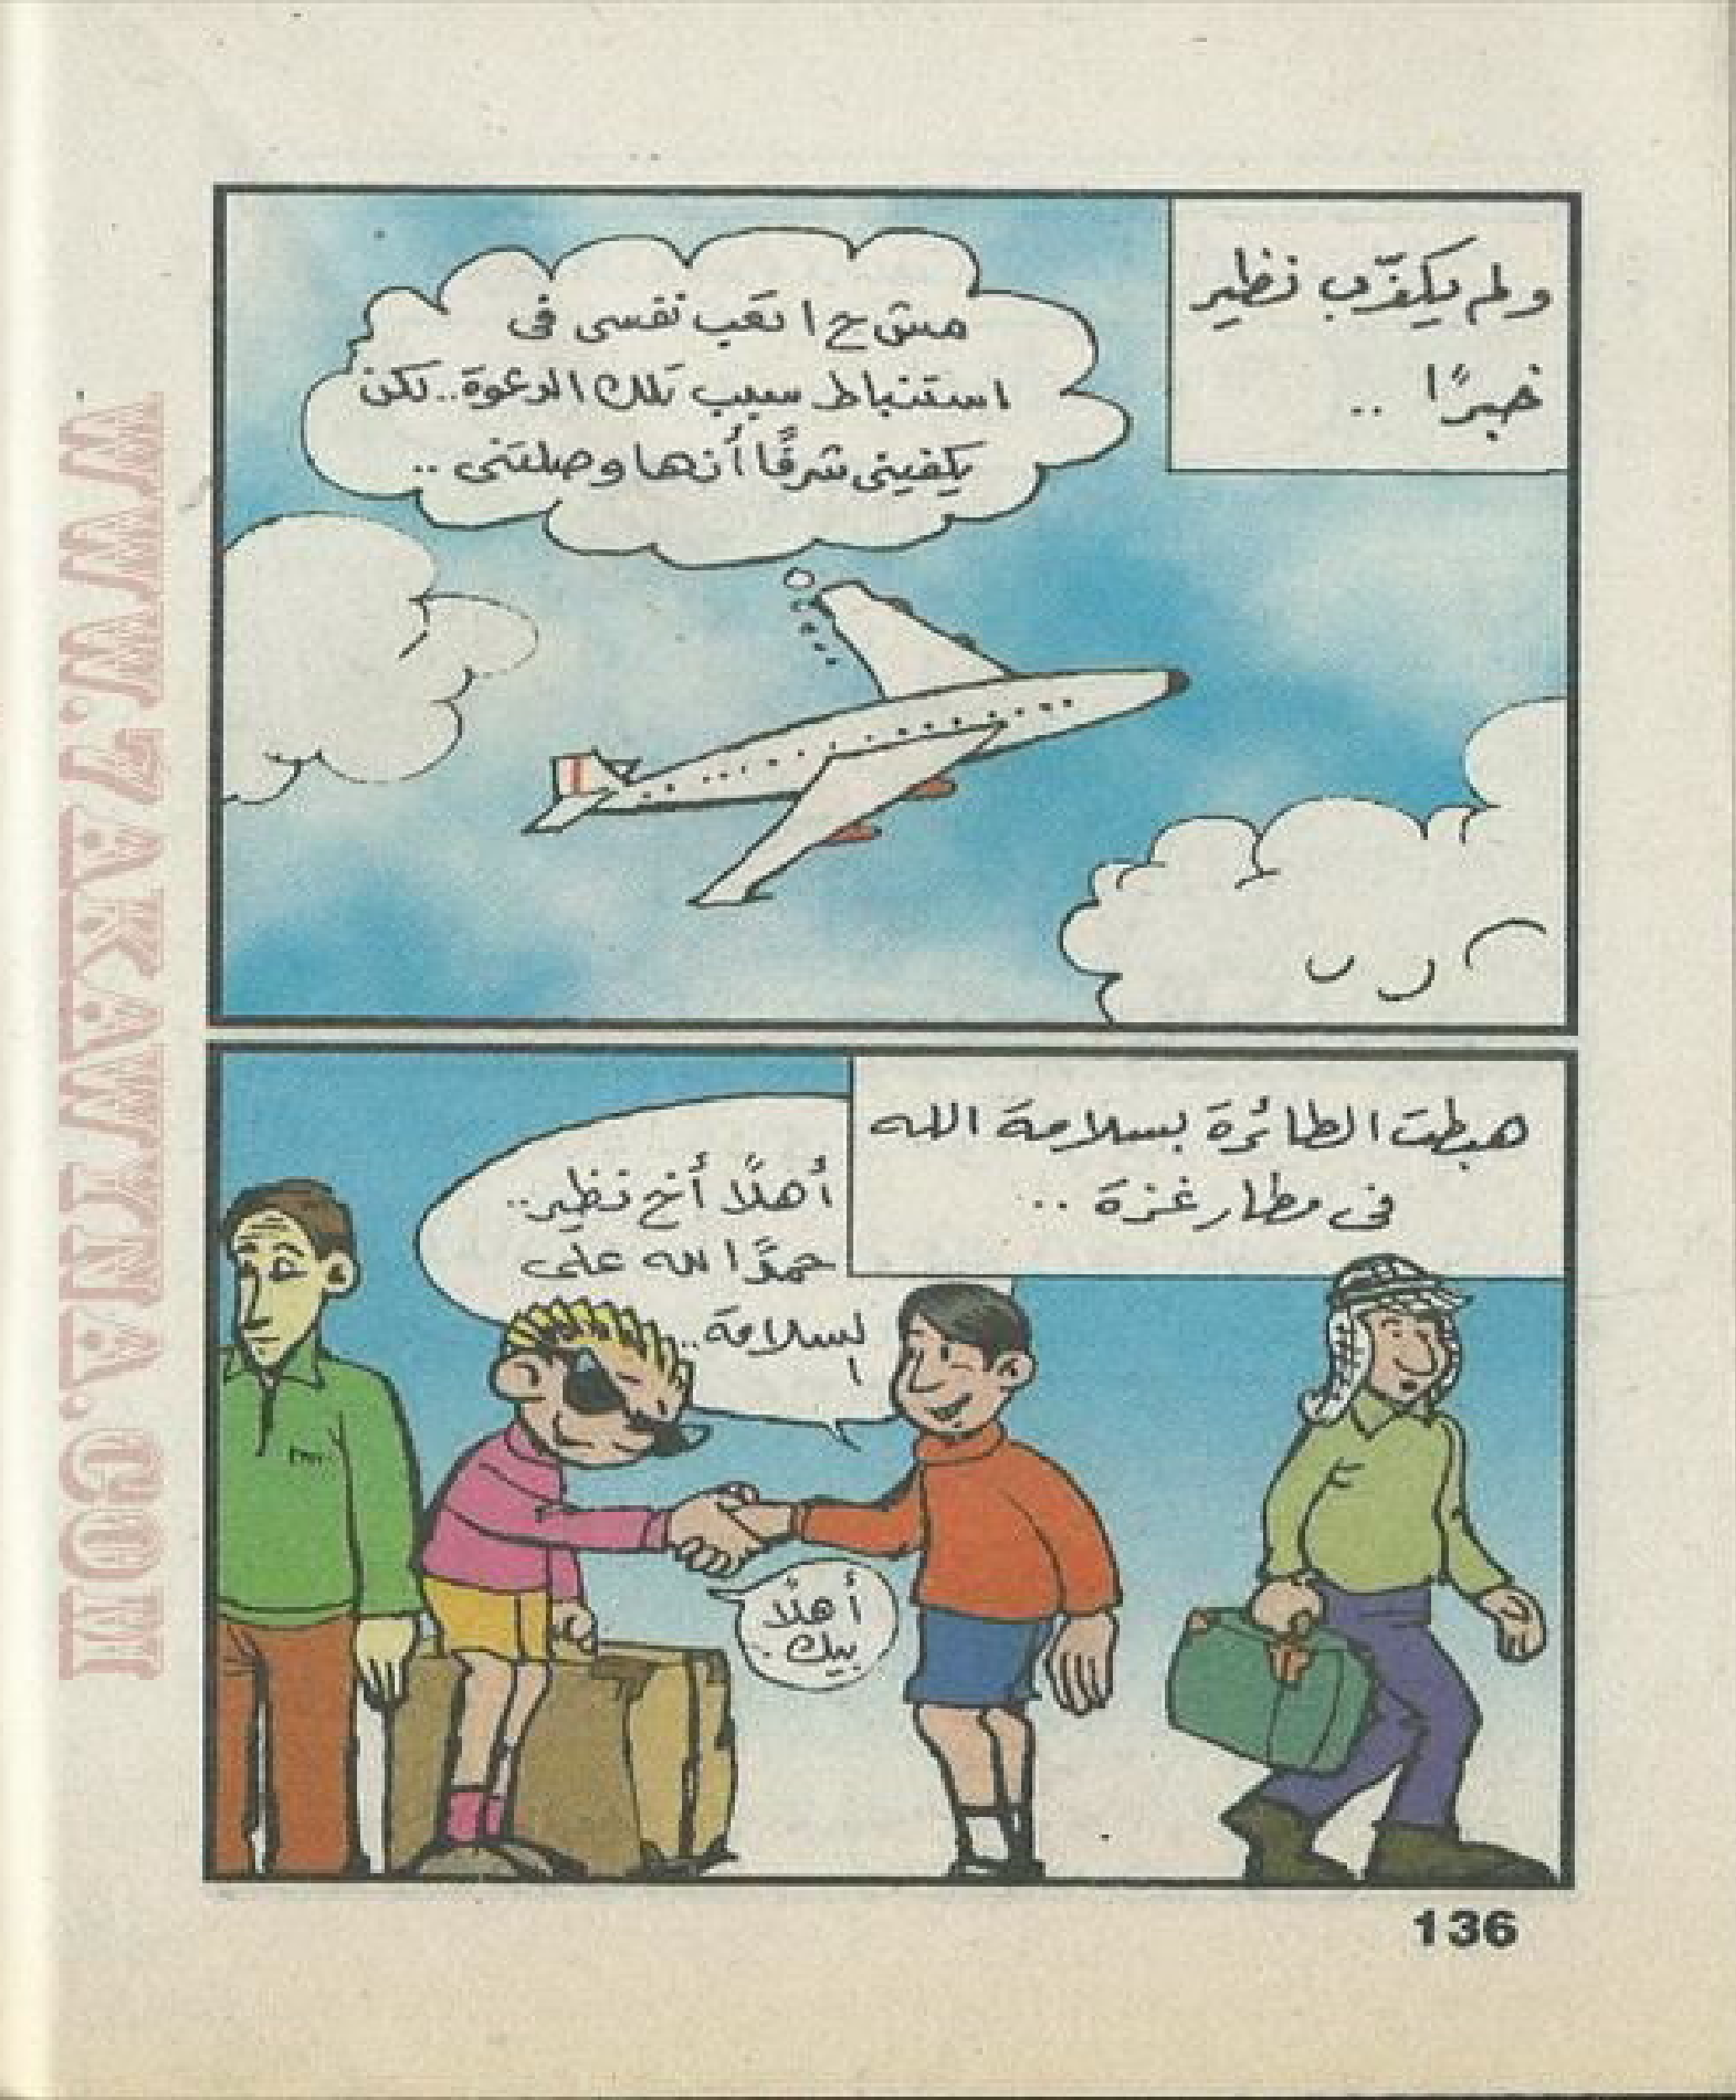 ولم يكذّب نظير
خبرًا ..
مش ح اتعب نفسى فى
استنباط سبب تلك الدعوة.. لكن
يكفينى شرفًا أنها وصلتنى ..
هبطت الطائرة بسلامة الله
فى مطار غزة ..
أهلًا أخ نظير..
حمدًا لله على
السلامة..
أهلًا
بيك.
136
WWW.7AKAWITNA.COM